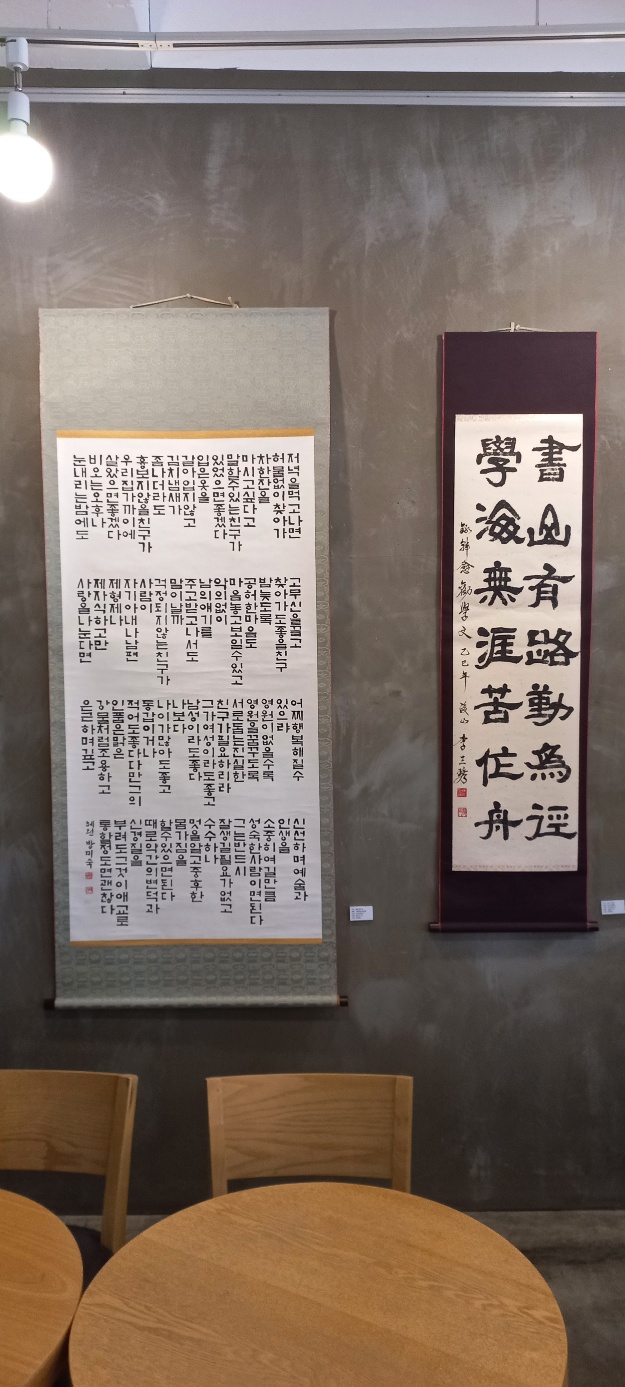 저녁을먹고나면
허물없이찾아가
차한잔을
마시고싶다고
말할수있는친구가
있었으면좋겠다
입은옷을
갈아입지않고
김치냄새가
좀나더라도
흉보지않을친구가
우리집가까이에
살았으면좋겠다
비오는오후나
눈내리는밤에도
고무신을끌고
찾아가도좋을친구
밤늦도록
공허한마음도
마음놓고보일수있고
악의없이
남의얘기를
주고받고나서도
말이날까
걱정되지않는친구가
사람이
자기아내나남편
제형제나
제자식하고만
사랑을나눈다면
어찌행복해질수
있으랴
영원이없을수록
영원을꿈꾸도록
서로돕는진실한
친구가필요하리라
그가여성이라도좋고
남성이라도좋다
나보다
나이가많아도좋고
동갑이거나
적어도좋다다만그의
인품은맑은
강물처럼조용하고
은근하며깊고
신선하며예술과
인생을
소중히여길만큼
성숙한사람이면된다
그는반드시
잘생길필요가없고
수수하나
멋을알고중후한
몸가짐을
할수있으면된다
때로약간의변덕과
신경질을
부려도그것이애교로
통할정도면괜찮다
書山有路勤為徑
學海無涯苦作舟
錄韓愈勸學文 乙巳年